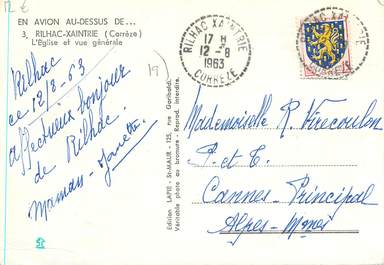 12 €
EN AVION AU-DESSUS DE...
3, RILHAC-XAINTRIE (Corrèze)
L'Église et vue générale
Rilhac
ce 12/8-63
affectueux bonjour
de Rilhac.
Maman - Janette
Edition LAPIE - St-MAUR - 125, rue Garibaldi.
Véritable photo au bromure - Reprod. interdite.
RILHAC XAINTRIE
17 H
12 - 8
1963
CORREZE
RILHAC XAINTRIE
CORREZE
Mademoiselle R. Virecoulon
P. et T.
Cannes-Principal
Alpes-Mmes